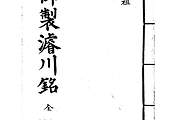 御製濬川銘 全